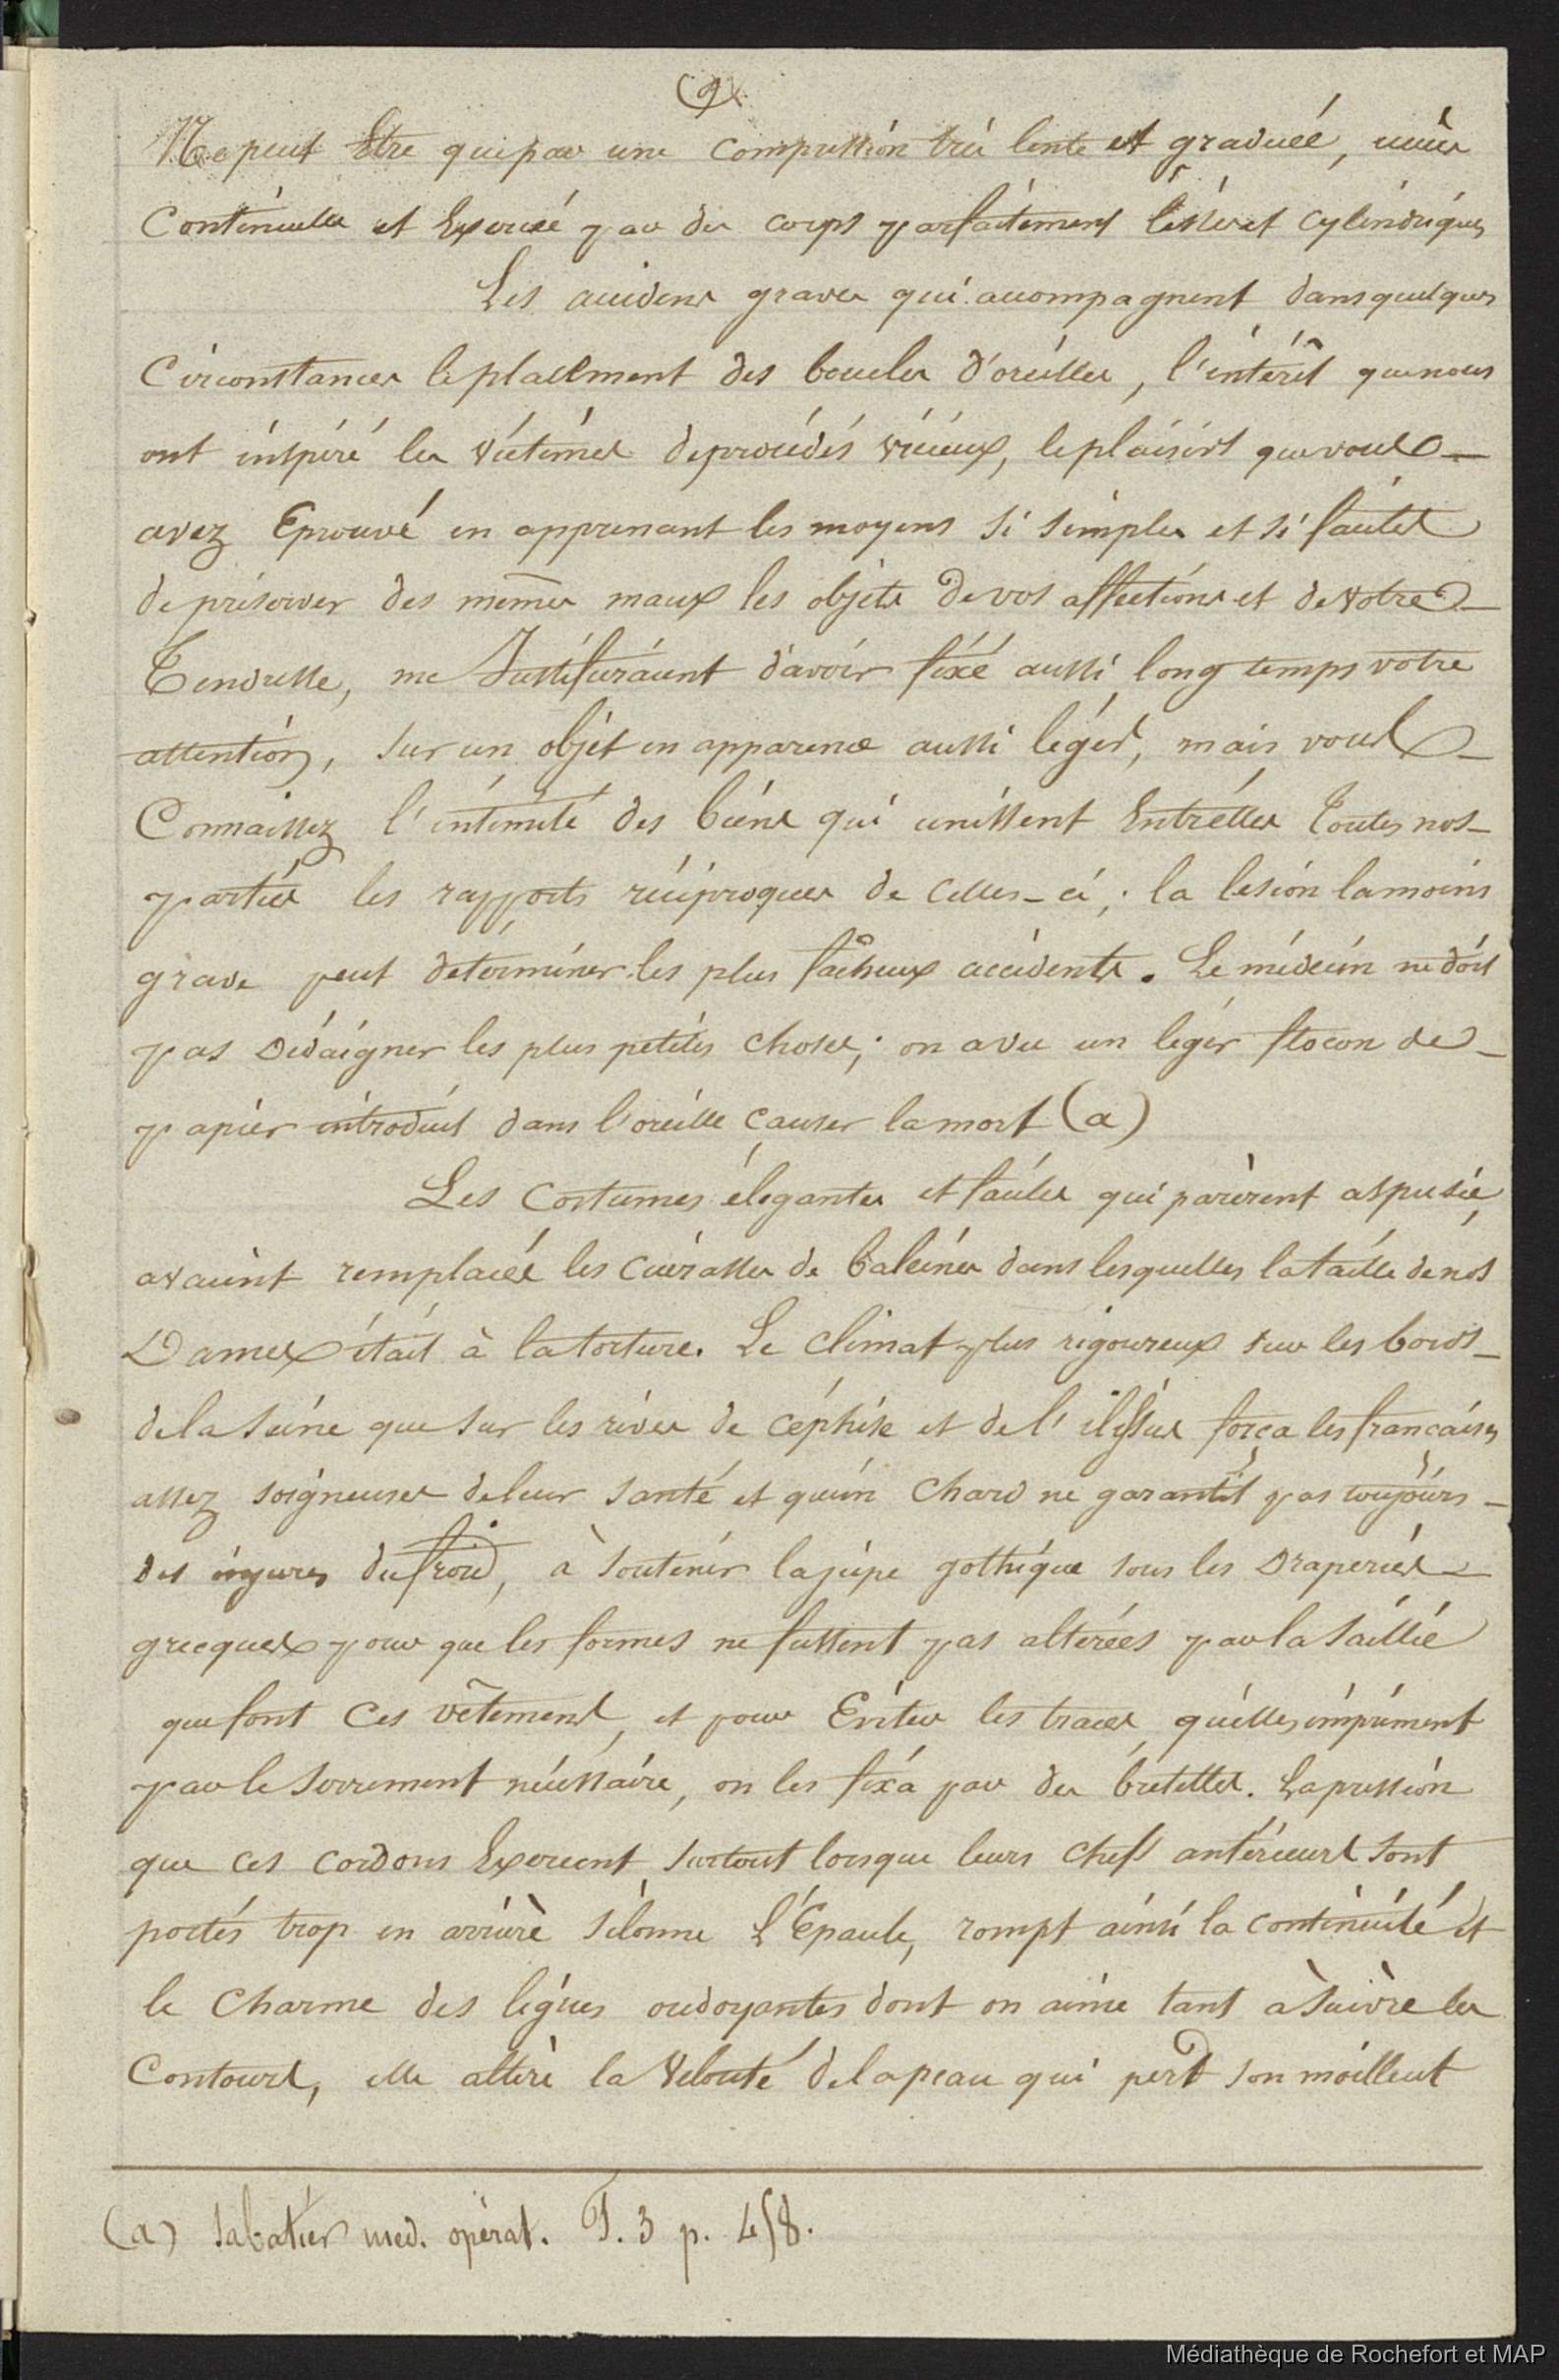 (9)
Ne peut être que par une compression très lente et graduée,
Continuelle et Exercée par des corps parfaitement lisses et cylindriques
Les accidens graves qui accompagnent dans quelques
Circonstances le placement des boucles d'oreilles, l'intérêt que nous
ont inspiré les victimes de procédés vicieux, le plaisir que vous
avez Eprouvé en apprenant les moyens si simples et si faciles
de préserver des mêmes maux les objets de vos affections et de votre
Tendresse, me Justifieraient d'avoir fixé aussi long temps votre
attention, sur un objet en apparence aussi léger, mais vous
Connaissez l'intimité des liens qui unissent Entr'elles Toutes nos
parties les rapports réciproques de celles-ci; la lesion la moins
grave peut déterminer les plus fâcheux accidents. Le médecin ne doit
pas Dédaigner les plus petites choses; on a vu un léger flocon de
papier introduit dans l'oreille causer la mort (a)
Les Costumes élégantes et faciles qui parèrent aspusie,
avaient remplacés les Cuirasses de baleines dans lesquelles la taille de nos
Dames était à la torture. Le Climat plus rigoureux sur les bords
de la Seine que sur les rives de Céphise et de l'ilissus força les françaises
assez soigneuses de leur santé et qu'un Chard ne garantit pas toujours
des injures du froid, à soutenir la jupe gothique sous les Draperies
grecques pour que les formes ne fussent pas altérées par la Saillie
que font Ces vêtemens, et pour Eviter les traces qu'elles impriment
par le Serrement nécessaire, on les fixa par des bretelles. La pression
que ces cordons Exercent surtout lorsque leurs chefs antérieurs sont
portés trop en arrière silonne L'Epaule, rompt ainsi la continuité et
le Charme des lignes ondoyantes dont on aime tant à Suivre les
Contours, elle altère la Velouté de la peau qui perd son moilleut
(a) Sabatier med. opérat. T. 3 p. 458.
Médiathèque de Rochefort et MAP